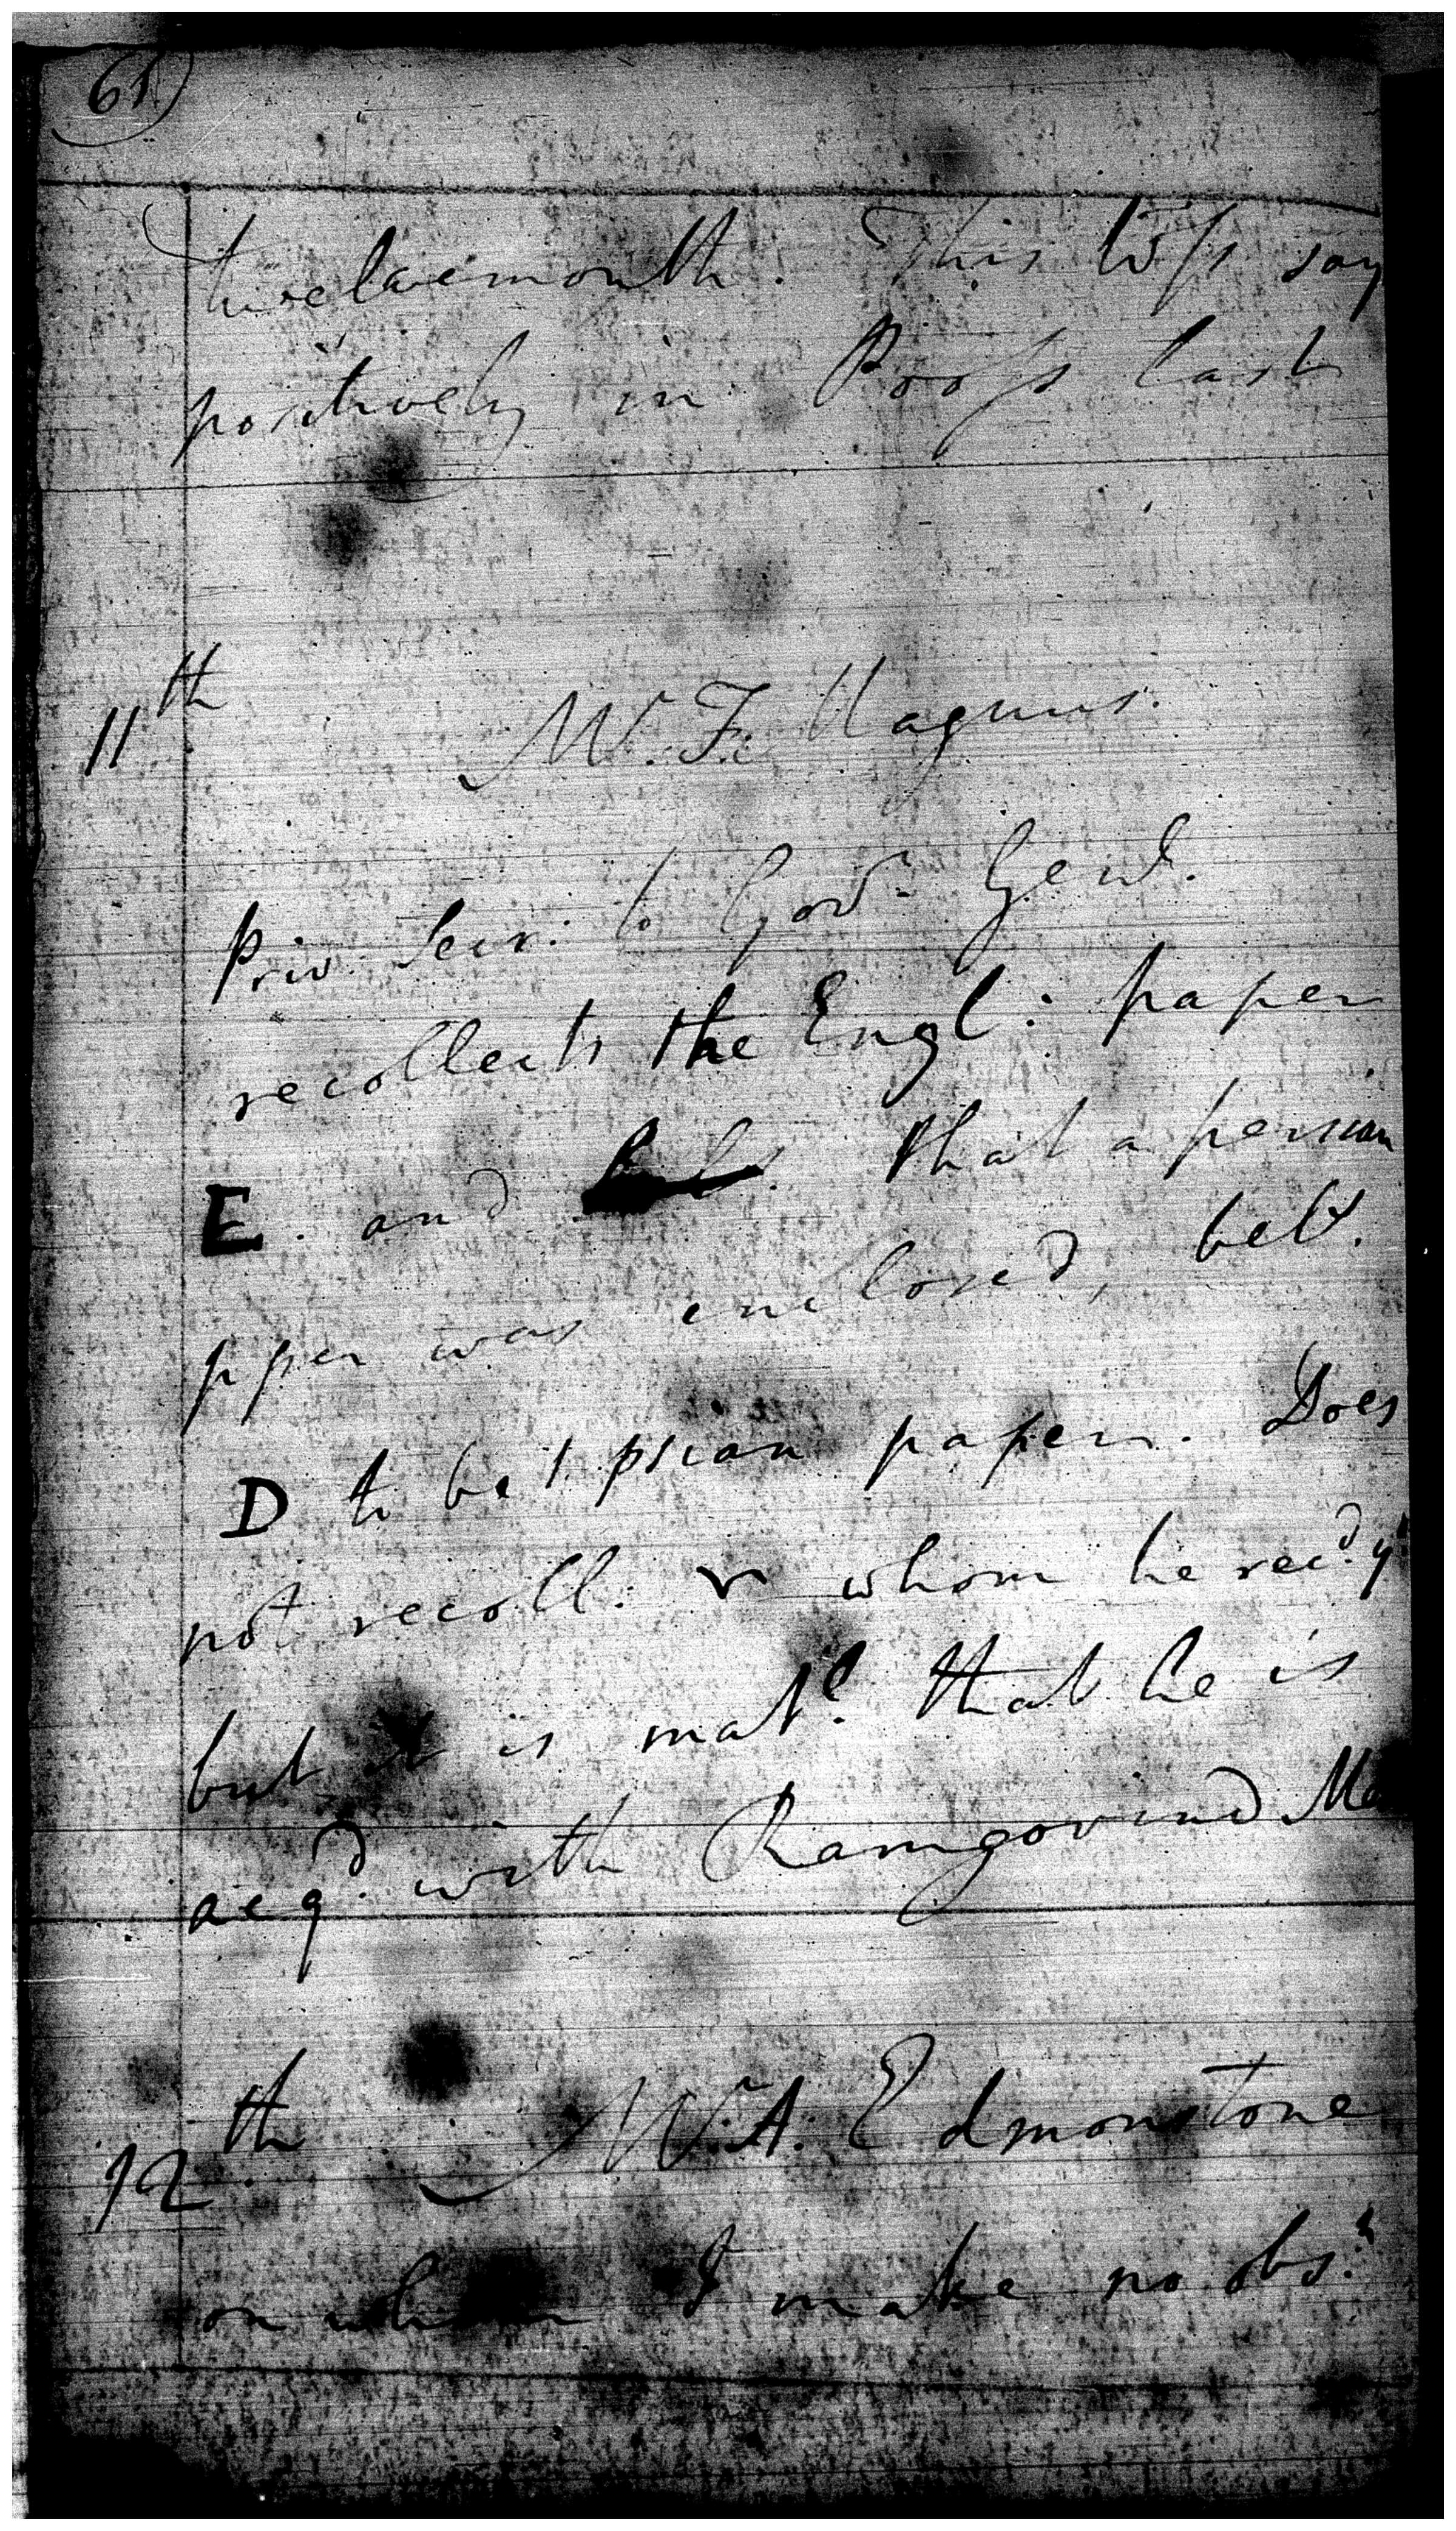 twelvemonth. This say
positively in last
11th
M. F. Magnus.
Priv. Secr: to Gov.r Genl.
recollects the Engl: paper
E. and that a persian
pper was enclosed, bel.d
D to be 1. psian paper. Does
not recoll: whom he rec.d yt
but it is mat.l that he is
acq.d with Ramgovind
12th M. A. Edmonstone
on whom I make no obs.n